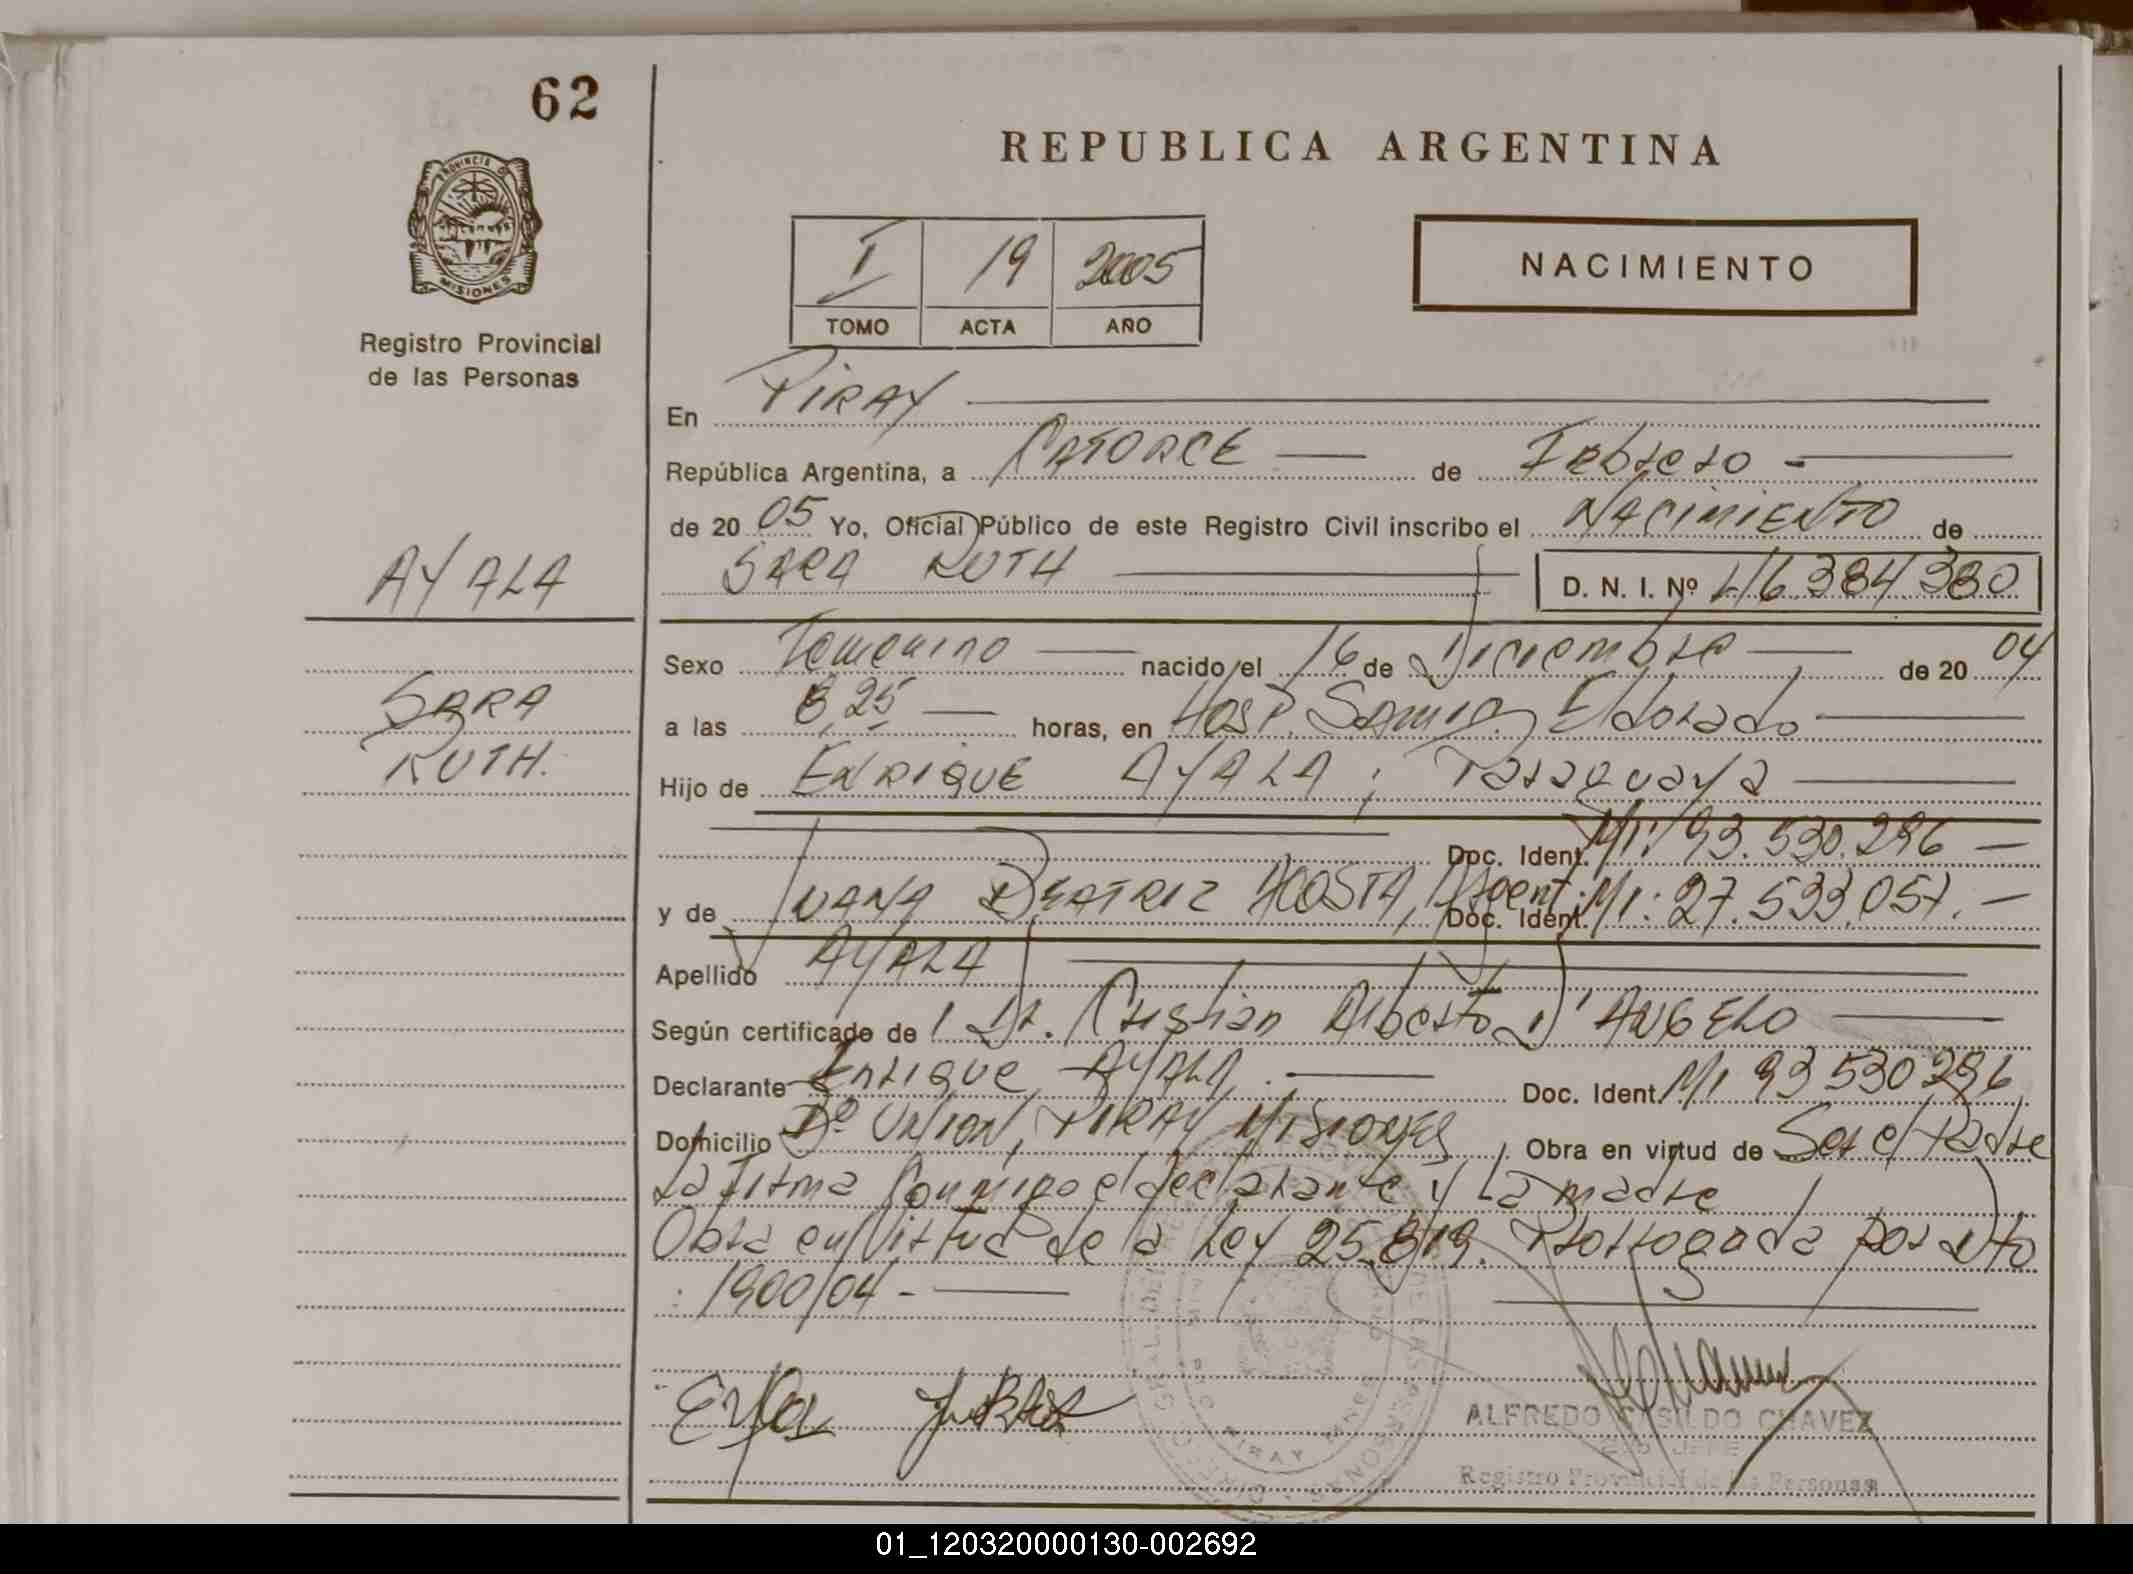 62
REPUBLICA ARGENTINA
PROVINCIA DE
MISIONES
Registro Provincial
de las Personas
I 19 2005
TOMO ACTA AÑO
NACIMIENTO
En PIRAY
República Argentina, a CATORCE de Febrero
de 20 05 Yo, Oficial Público de este Registro Civil inscribo el NACIMIENTO de
SARA RUTH D. N. I. Nº 46384380
AYALA
SARA
RUTH.
Sexo Femenino nacido el 16 de Diciembre de 20 04
a las 8,25 horas, en Hosp. Samic. Eldorado
Hijo de ENRIQUE AYALA, Paraguaya
Doc. Ident. MI: 93.530.296
y de JUANA BEATRIZ ACOSTA, Argent. Doc. Ident. MI: 27.533.057.
Apellido AYALA
Según certificado de Dr. Cristian Alberto D'ANGELO
Declarante Enrique AYALA. Doc. Ident. MI 93530296
Domicilio Bº UNION, PIRAY MISIONES, Obra en virtud de Ser el Padre
La Firma Conmigo el declarante y La madre
Obra en Virtud de la Ley 25.819. Prorrogada por Dto
1900/04.-
ALFREDO CASILDO CHAVEZ
Registro Provincial de las Personas
01_120320000130-002692